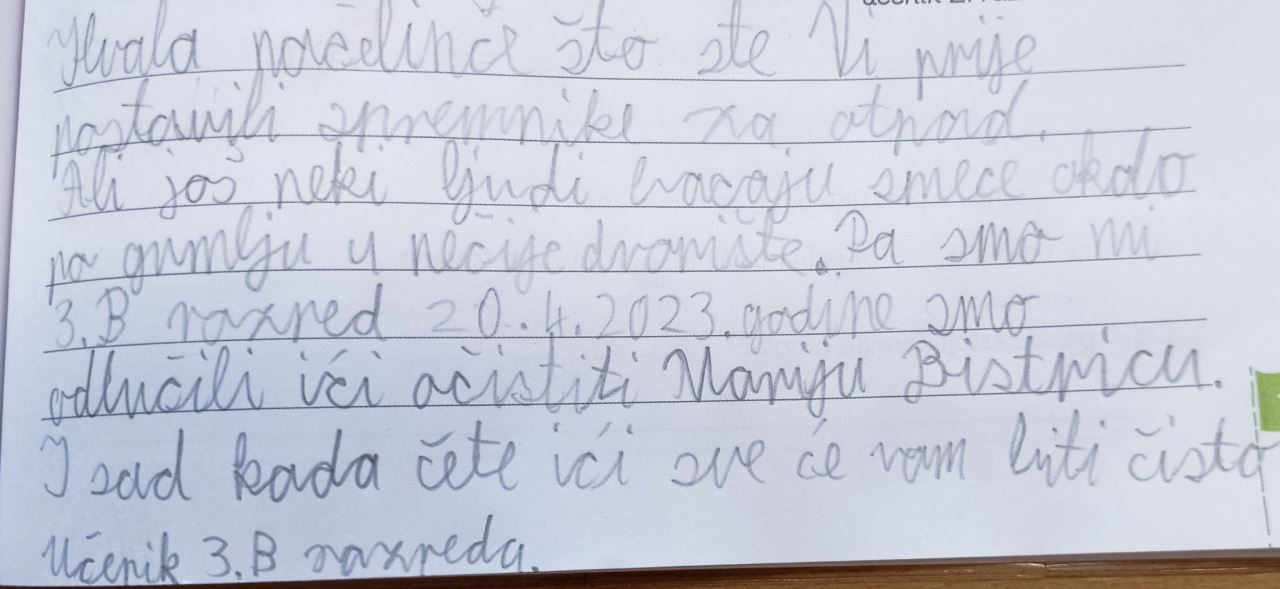 Hvala načelniče što ste Vi prije
postavili spremnike za otpad.
Ali još neki ljudi bacaju smeće okolo
po grmlju u nečije dvorište. Pa smo mi
3.B razred 20.4.2023.godine smo
odlučili ići očistiti Mariju Bistricu.
I sad kada čete ići sve će vam biti čisto
Učenik 3.B razreda.